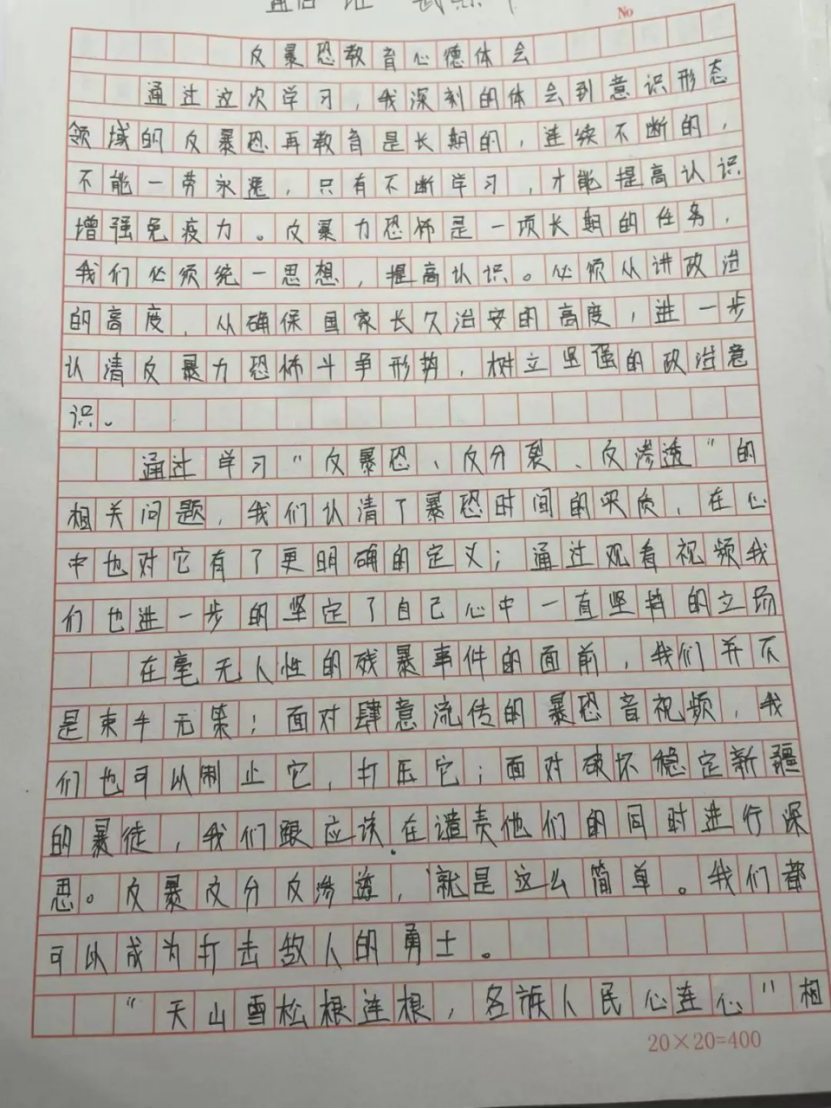 No
反暴恐教育心德体会
通过这次学习，我深刻的体会到意识形态
领域的反暴恐再教育是长期的，连续不断的，
不能一劳永逸，只有不断学习，才能提高认识
增强免疫力。反暴力恐怖是一项长期的任务，
我们必须统一思想，提高认识。必须从讲政治
的高度，从确保国家长久治安的高度，进一步
认清反暴力恐怖斗争形势，树立坚强的政治意
识。
通过学习“反暴恐、反分裂、反渗透”的
相关问题，我们认清了暴恐时间的实质，在心
中也对它有了更明确的定义；通过观看视频我
们也进一步的坚定了自己心中一直坚持的立场
在毫无人性的残暴事件的面前，我们并不
是束手无策；面对肆意流传的暴恐音视频，我
们也可以制止它，打压它；面对破坏稳定新疆
的暴徒，我们跟应该在谴责他们的同时进行深
思。反暴反分反渗透，就是这么简单。我们都
可以成为打击敌人的勇士。
“天山雪松根连根，各族人民心连心”相
20×20=400